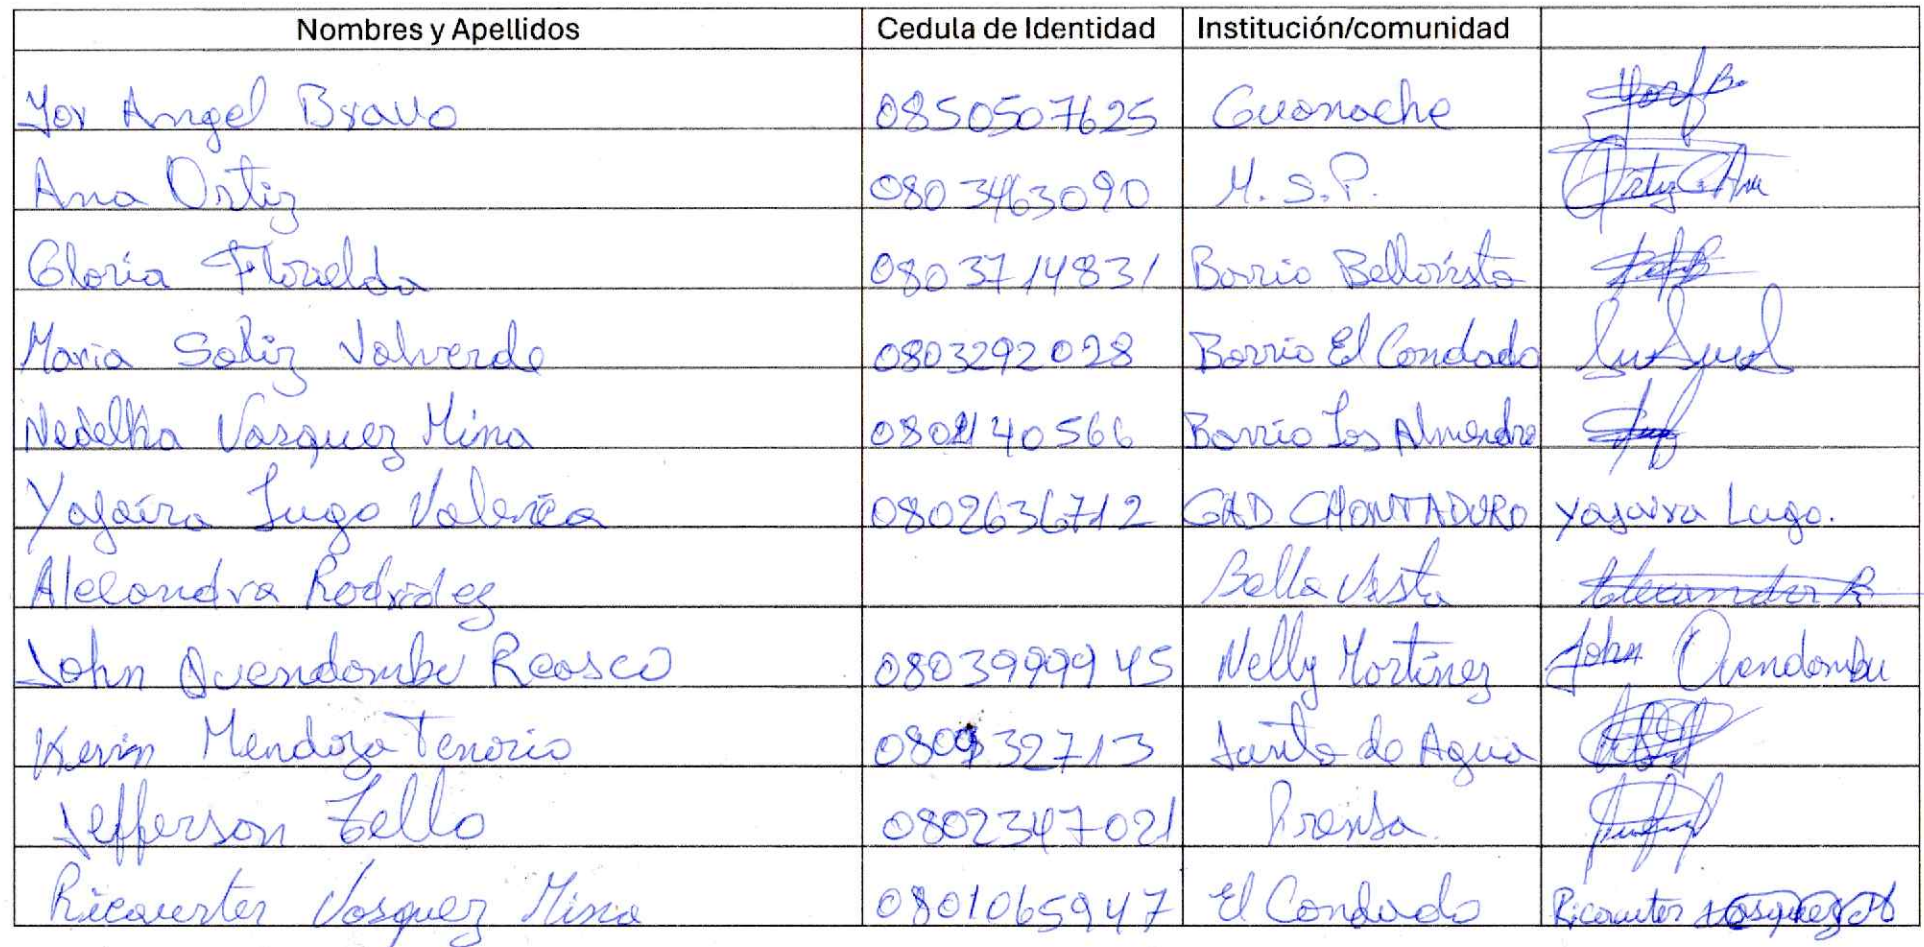 Nombres y Apellidos Cedula de Identidad Institución/comunidad
Yor Angel Bravo 0850507625 Guanache Yorf B.
Ana Ortiz 0803463090 M.S.P. Ortiz Ana
Gloria Florelda 0803714831 Barrio Bellavista
Maria Soliz Valverde 0803292028 Barrio El Condado
Nedelka Vasquez Mina 0802140566 Barrio Los Almendro
Yajaira Lugo Valencia 0802636712 GAD CHONTADURO Yajaira Lugo.
Alecandra Rodridez Bella Vista Alecandra R
John Quendambu Reasco 0803999945 Nelly Martínez John Quendambu
Kevin Mendoza Tenorio 080932713 Junta de Agua
Jefferson Tello 0802347021 Prensa
Ricaurter Vasquez Mina 0801065947 El Condado Ricaurter Vasquez M